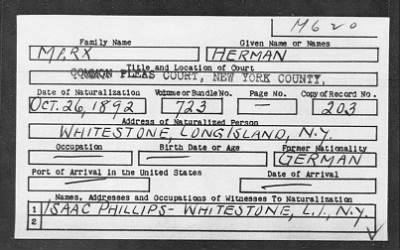 M620
Family Name Given Name or Names
MARX HERMAN
Title and Location of Court
COMMON PLEAS COURT, NEW YORK COUNTY.
Date of Naturalization Volume or Bundle No. Page No. Copy of Record No.
OCT. 26, 1892 723 — 203
Address of Naturalized Person
WHITESTONE, LONG ISLAND, N.Y.
Occupation Birth Date or Age Former Nationality
GERMAN
Port of Arrival in the United States Date of Arrival
Names, Addresses and Occupations of Witnesses To Naturalization
1 ISAAC PHILLIPS - WHITESTONE, L.I., N.Y.
2